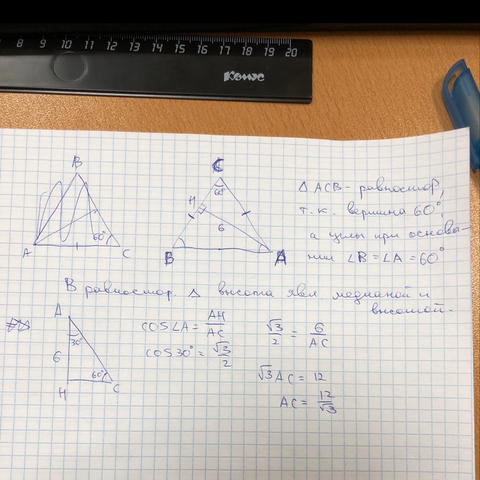 8 9 10 11 12 13 14 15 16 17 18 19 20
Комус
B
A
C
60°
C
60°
H
6
B
A
Δ ACB - равностор,
т.к. вершина 60°,
а углы при основа-
нии ∠B = ∠A = 60°
В равностор. Δ высота явл медианой и
высотой.
A
30°
6
60°
H
C
cos∠A = AH/AC
cos30° = √3/2
√3/2 = 6/AC
√3 AC = 12
AC = 12/√3